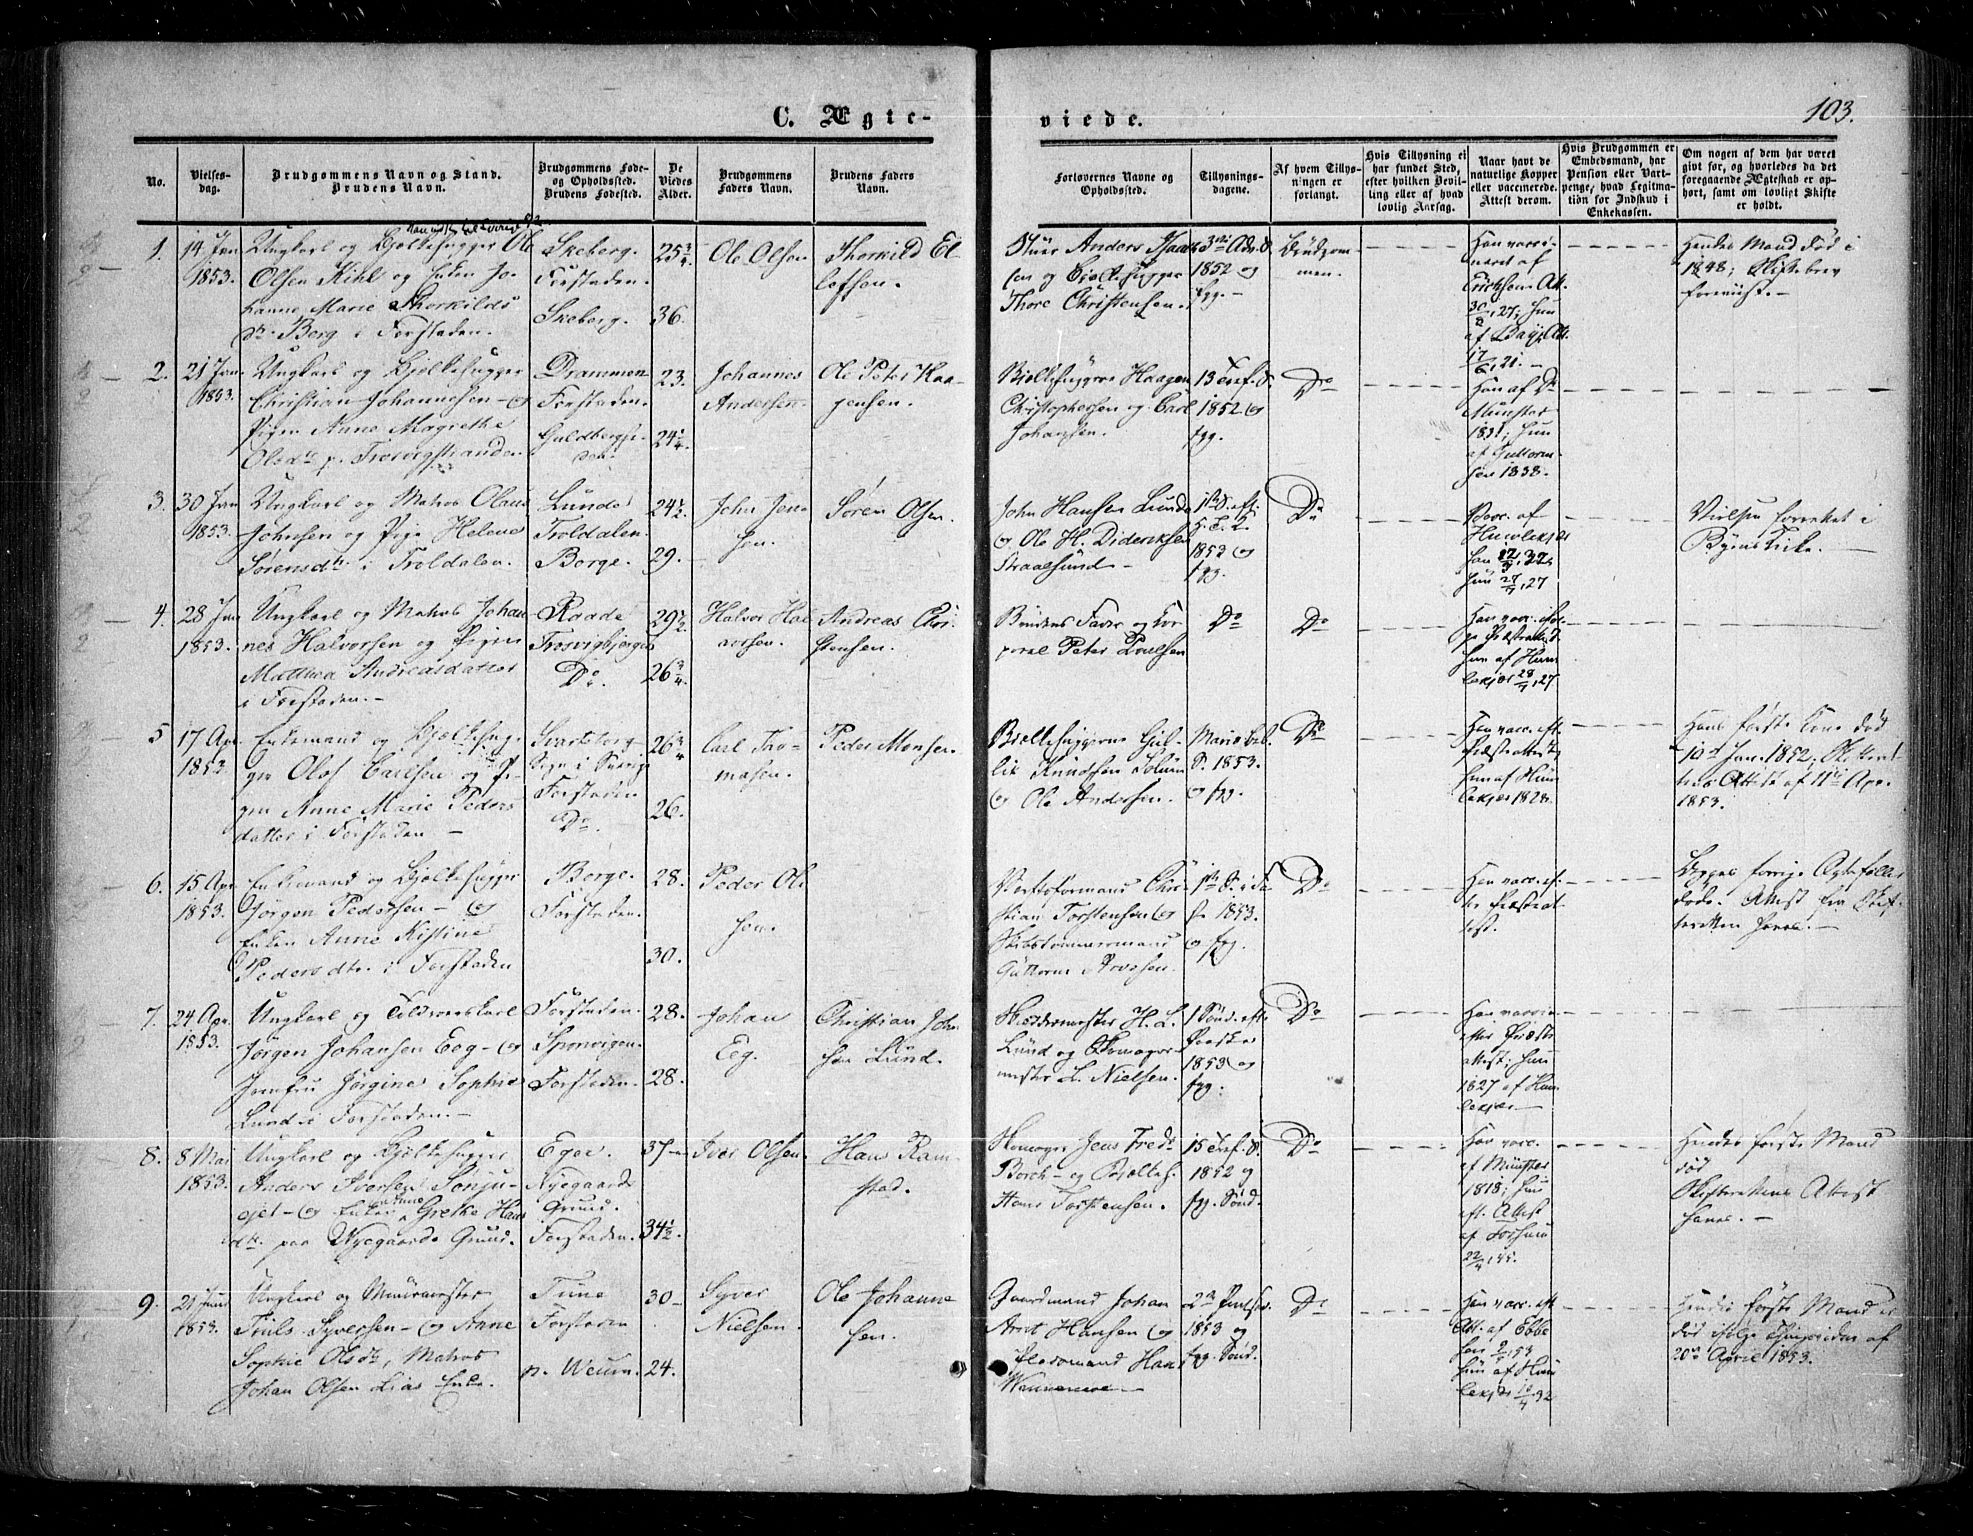 C. Ægte-
viede.
103.
No.
Vielses-
dag.
Brudgommens Navn og Stand.
Brudens Navn.
Brudgommens Føde-
og Opholdssted.
Brudens Fødested.
De
Viedes
Alder.
Brudgommens
Faders Navn.
Brudens Faders
Navn.
Forlovernes Navne og
Opholdssted.
Tillysnings-
dagene.
Af hvem Tillys-
ningen er
forlangt.
Hvis Tillysning ei
har fundet Sted,
efter hvilken Bevil-
ling eller af hvad
lovlig Aarsag.
Naar havt de
naturlige Kopper
eller vaccinerede.
Attest derom.
Hvis Brudgommen er
Embedsmand, har
Pension eller Vart-
penge, hvad Legitima-
tion for Indskud i
Enkekassen.
Om nogen af dem har været
givt før, og hvorledes da det
foregaaende Ægteskab er op-
hørt, samt om lovligt Skifte
er holdt.
1.
14 Jan
1853.
Ungkarl og Bjelkehugger Ole
Olsen Kihl og Enken Jo-
hanne Marie Thorkilds
dr Berg i Forstaden.
Skeberg.
Forstaden.
Skeberg.
25 3/4
36.
Ole Olsen
Thorkild El-
lefsen.
Anders Isaak
sen og Bjelkehugger
Thore Christensen.
3die Adv. S.
1852 og
fgg.
Brudgom-
men.
Han vacci-
neret af
Erichsen Att.
27; hun
af
17/6, 21.
Hendes Mand død i
1848; Skiftebrev
foreviist.
2.
21 Jan
1853.
Ungkarl og Bjelkehugger
Christian Johannesen og
Pigen Anne Magrethe
Olsdr p. Trosvigstranden
Drammen
Forstaden.
Guldbergsi-
den.
23.
24 1/4
Johannes
Andersen.
Ole Peter Haa-
gensen.
Bjelkehuggerne Haagen
Christophersen og Carl
Johansen.
13 Tref. S.
1852 og
fgg.
Do
Han af Dr
Münster
1831; hun
af Guttorm-
sen 1838.
3.
30 Jan
1853.
Ungkarl og Matros Olaus
Johnsen og Pige Helene
Sørensdtr i Troldalen.
Lunde
Troldalen.
Borge.
24 1/2
29.
John Jen-
sen.
Søren Olsen.
John Hansen Lunde
og Ole H. Dideriksen
Straalsund
1ste S. eft.
H. 3 K.
1853 og
fgg.
Do
Vacc. af
Humlekjær
han 32
hun 27
Vielsen forrettet i
Byens Kirke.
4.
28 Jan
1853.
Ungkarl og Matros Johan-
nes Halvorsen og Pigen
Mathea Andreasdatter
i Forstaden.
Raade
Trosvigbjerget
Do.
29 1/2
26 3/4
Halvor Hal-
vorsen.
Andreas Chri-
stensen.
Brudens Fader og Cor-
poral Peter Poulsen
Do
Do
hun af Hum-
lekjær 27
5
17 Apr.
1853
Enkemand og Bjelkehug-
ger Olof Carlsen og Pi-
gen Anne Marie Peders
datter i Forstaden
Svarteborg
Sogn i Sverige
Forstaden
Do.
26 3/4
26.
Carl Tho-
masen.
Peder Monsen.
Bjelkehuggerne Gul-
lik Knudsen Solum
og Ole Andersen.
Mariæ Beb.
S. 1853.
og fgg.
Do
Han vacc. eft.
Præsteattest,
hun af Hum-
lekjær 1828.
Hans første Kone død
19de Jan. 1852; Skifteret-
tens Attest af 11te Apr.
1853.
6.
15 Apr
1853.
Enkemand og Bjelkehugger
Jørgen Pedersen og
Enken Anne Kistine
Pedersdtr. i Forstaden
Borge.
Forstaden.
28.
30.
Peder Ol-
sen.
Christian Torstensen og
Skibstømmermand
Guttorm Arvesen.
1ste S. i Fa-
ste 1853.
og fgg.
Do
Han vacc. ef-
ter Præsteat-
test.
Begges forrige Ægtefæller
døde. Attest fra Skif-
teretten haves.
7.
24 Apr.
1853.
Ungkarl og Toldroerskarl
Jørgen Johansen Eeg og
Jomfru Jørgine Sophie
Lund i Forstaden.
Forstaden.
Sponvigen.
Forstaden.
28.
28.
Johan
Eeg.
Christian Joh-
sen Lund.
H. L.
Lund og Skomager-
mester L. Nielsen.
1 Sønd. efter
Paaske
1853 og
fgg.
Do
Han vaccin.
efter Præste-
attest; hun
1827 af Hum-
lekjær
8.
8 Mai
1853.
Ungkarl og Bjelkehugger
Anders Iversen Sonju-
ejet og Enken Anne Grethe Hans
dtr. paa Nyegaards Grund.
Eger.
Nyegaards
Grund.
Forstaden.
37
34 1/2
Iver Olsen.
Hans Ram-
stad.
Skomager Jens Fredr
Borch og Bjelkeh.
Hans Torstensen.
15 Tref. S.
1852 og
fgg. Sønd.
Do
Han vacc.
af Münster
1818; hun
eft. Attest
af
22/4, 45.
Hendes første Mand
død
Skifterettens Attest
haves.
9.
21 Juni
1853.
Ungkarl og Muurmester
Truls Syversen og Anne
Sophie Olsdr, Matros
Johan Olsen Lias Enke.
Tune
Forstaden
p. Weum.
30
24.
Syver
Nielsen.
Ole Johanne-
sen.
Gaardmand Johan
Arnt Hansen og
Pladsmand Hans
2den Pintsed.
1853 og
fgg. Sønd.
Do
Han vacc. eft.
Att. af Ebbe
sen 53
hun af Hum-
lekjær 32
Hendes første Mand er
død ifølge Skiftesedel af
20de April 1853.